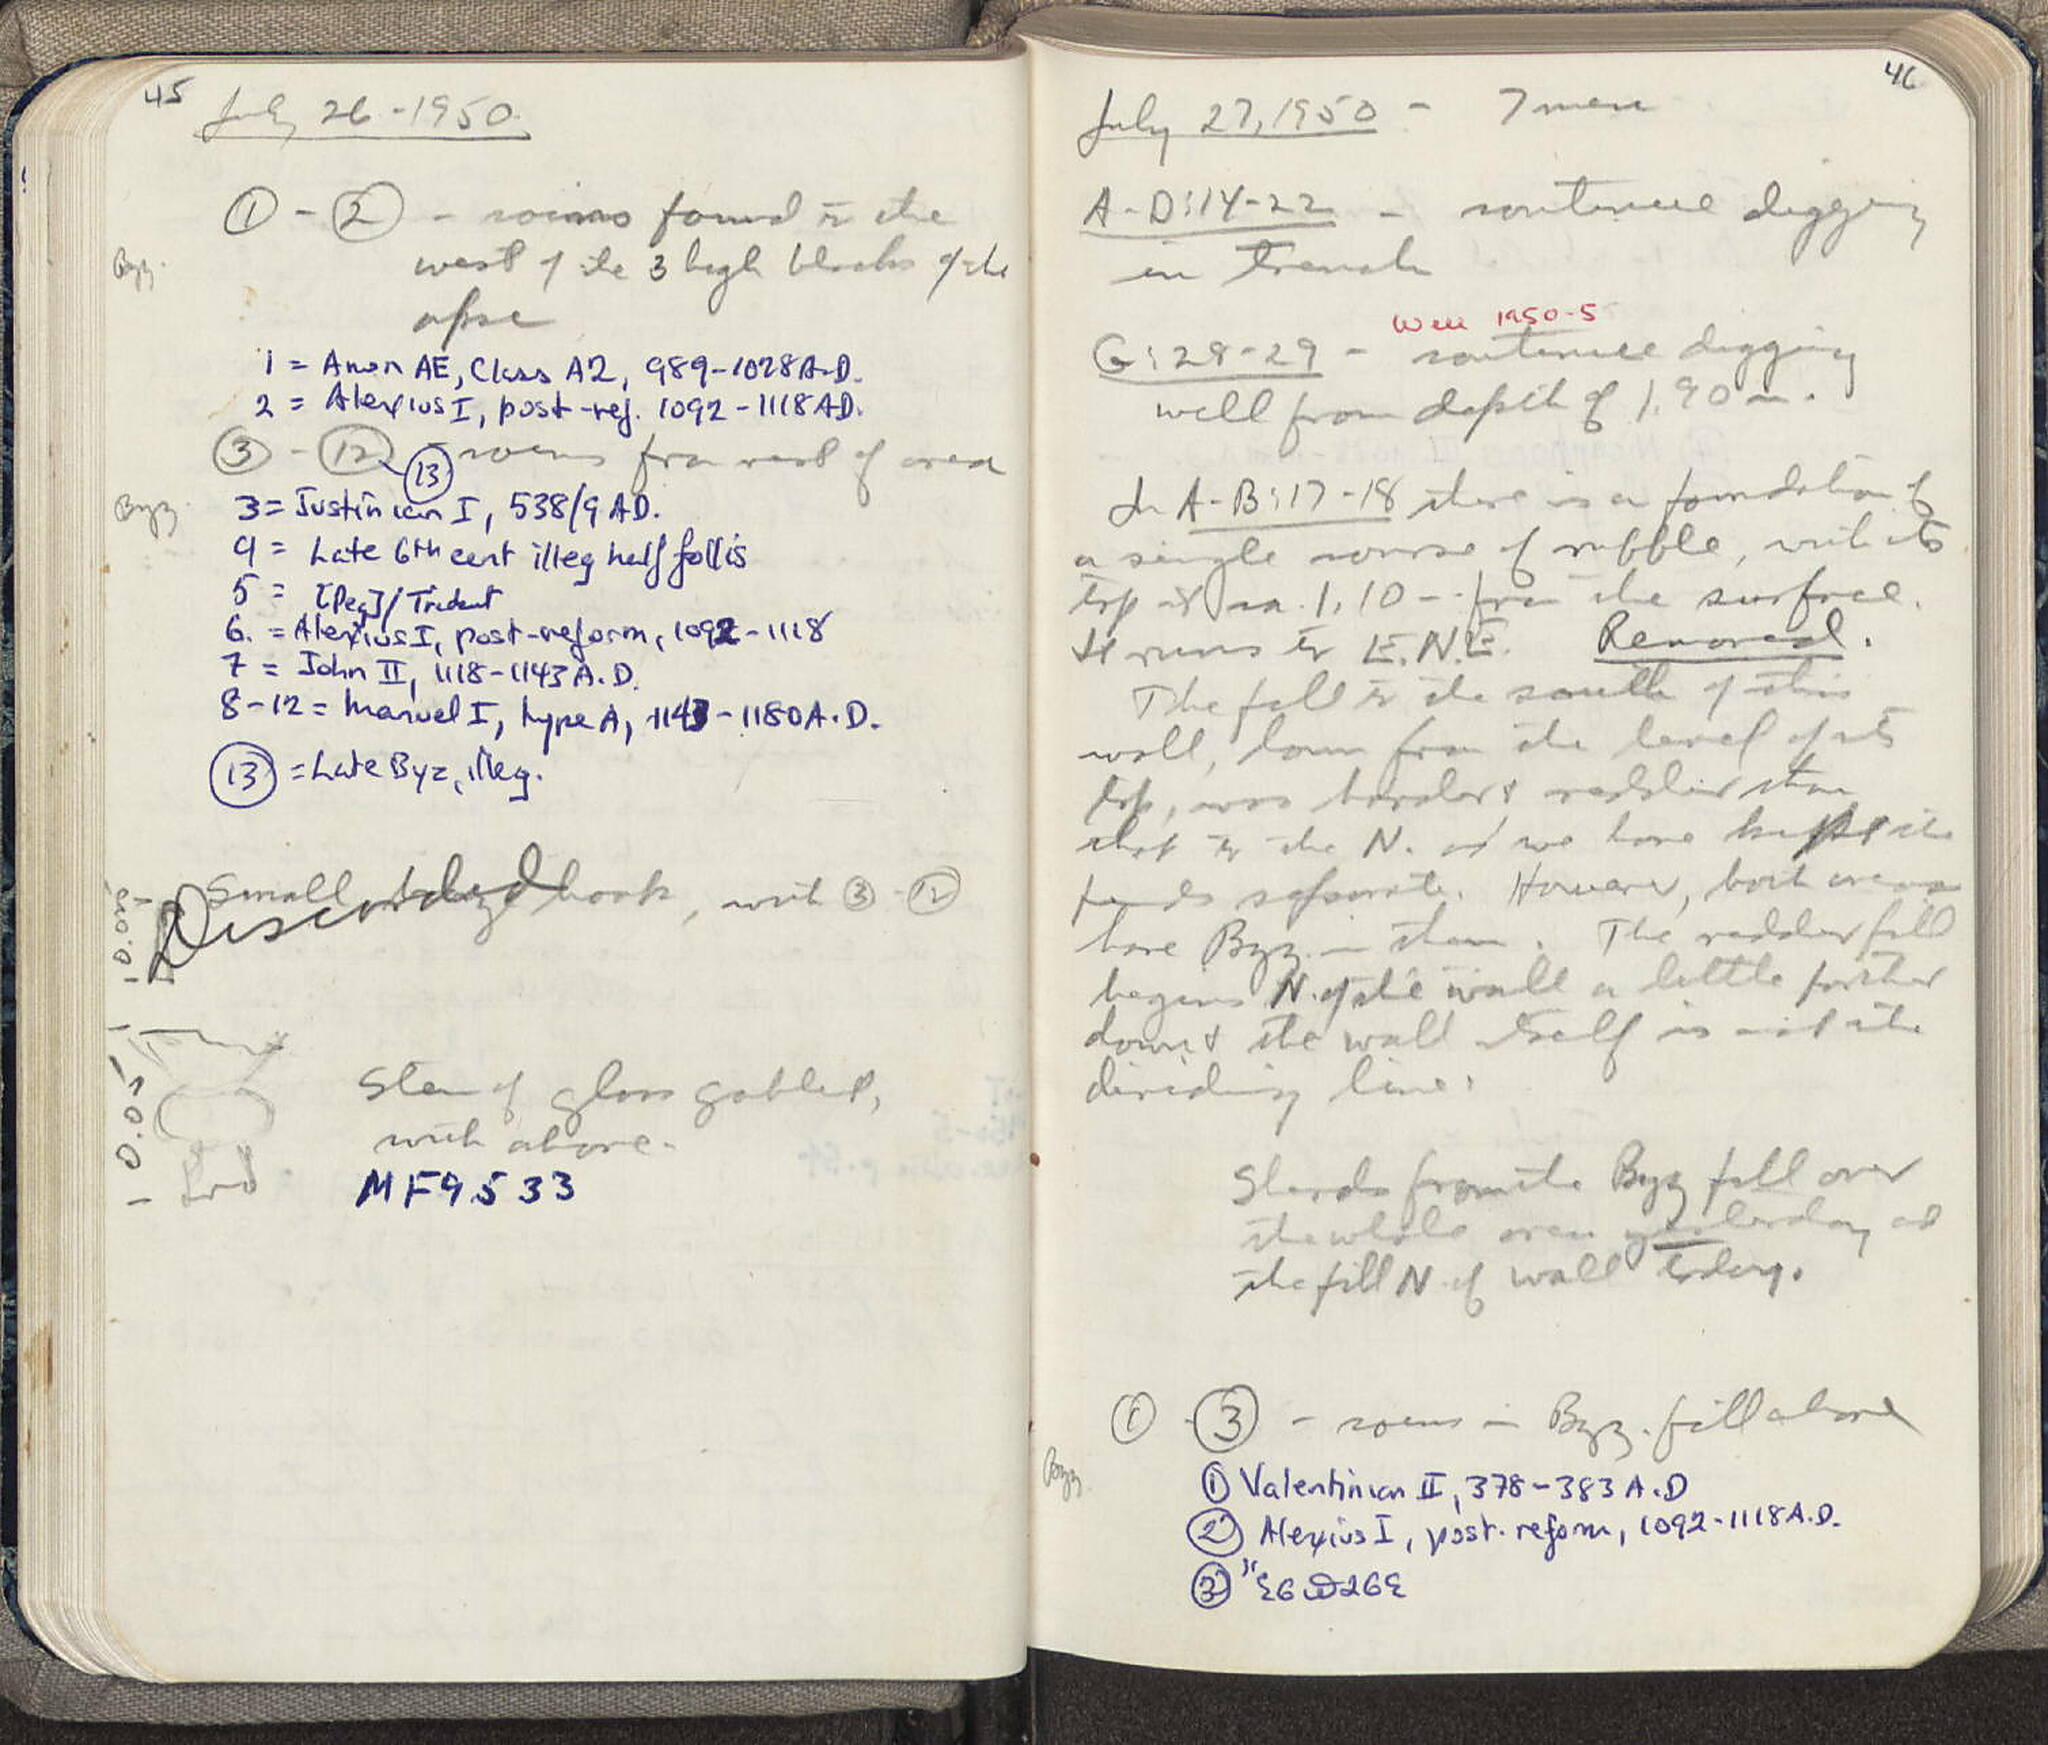 45
July 26 - 1950
① - ② - coins found to the
Byz.
west of the 3 high blocks of the
apse
1 = Anon AE, Class A2, 989-1028 A.D.
2 = Alexius I, post-ref. 1092-1118 AD.
③ - ⑫ ⑬ coins from rest of area
Byz.
3 = Justinian I, 538/9 AD.
4 = Late 6th cent illeg half follis
5 = [Peg]/Trident
6. = Alexius I, post-reform, 1092-1118
7 = John II, 1118-1143 A.D.
8-12 = Manuel I, type A, 1143-1180 A.D.
⑬ = Late Byz, illeg.
Small hook, with ③ - ⑫
Discarded
Stem of glass goblet,
with above.
0.05
MF9533
46
July 27, 1950 - 7 men
A-D:14-22 - continue digging
in trench
Well 1950-5
G:28-29 - continue digging
well from depth of 1.90 m.
In A-B:17-18 there is a foundation of
a single course of rubble, with its
top at ca. 1.10 m. from the surface.
It runs to E.N.E. Removed.
The fill to the south of this
wall, down from the level of its
top, was harder & redder than
that to the N. and we have kept the
separate. However, both areas
have Byz. in them. The redder fill
begins N. of the wall a little further
down & the wall itself is not the
dividing line.
Sherds from the Byz fill over
the whole area yesterday and
the fill N. of wall today.
① - ③ - coins in Byz. fill above
Byz.
① Valentinian II, 378-383 A.D
② Alexius I, post-reform, 1092-1118 A.D.
③ "